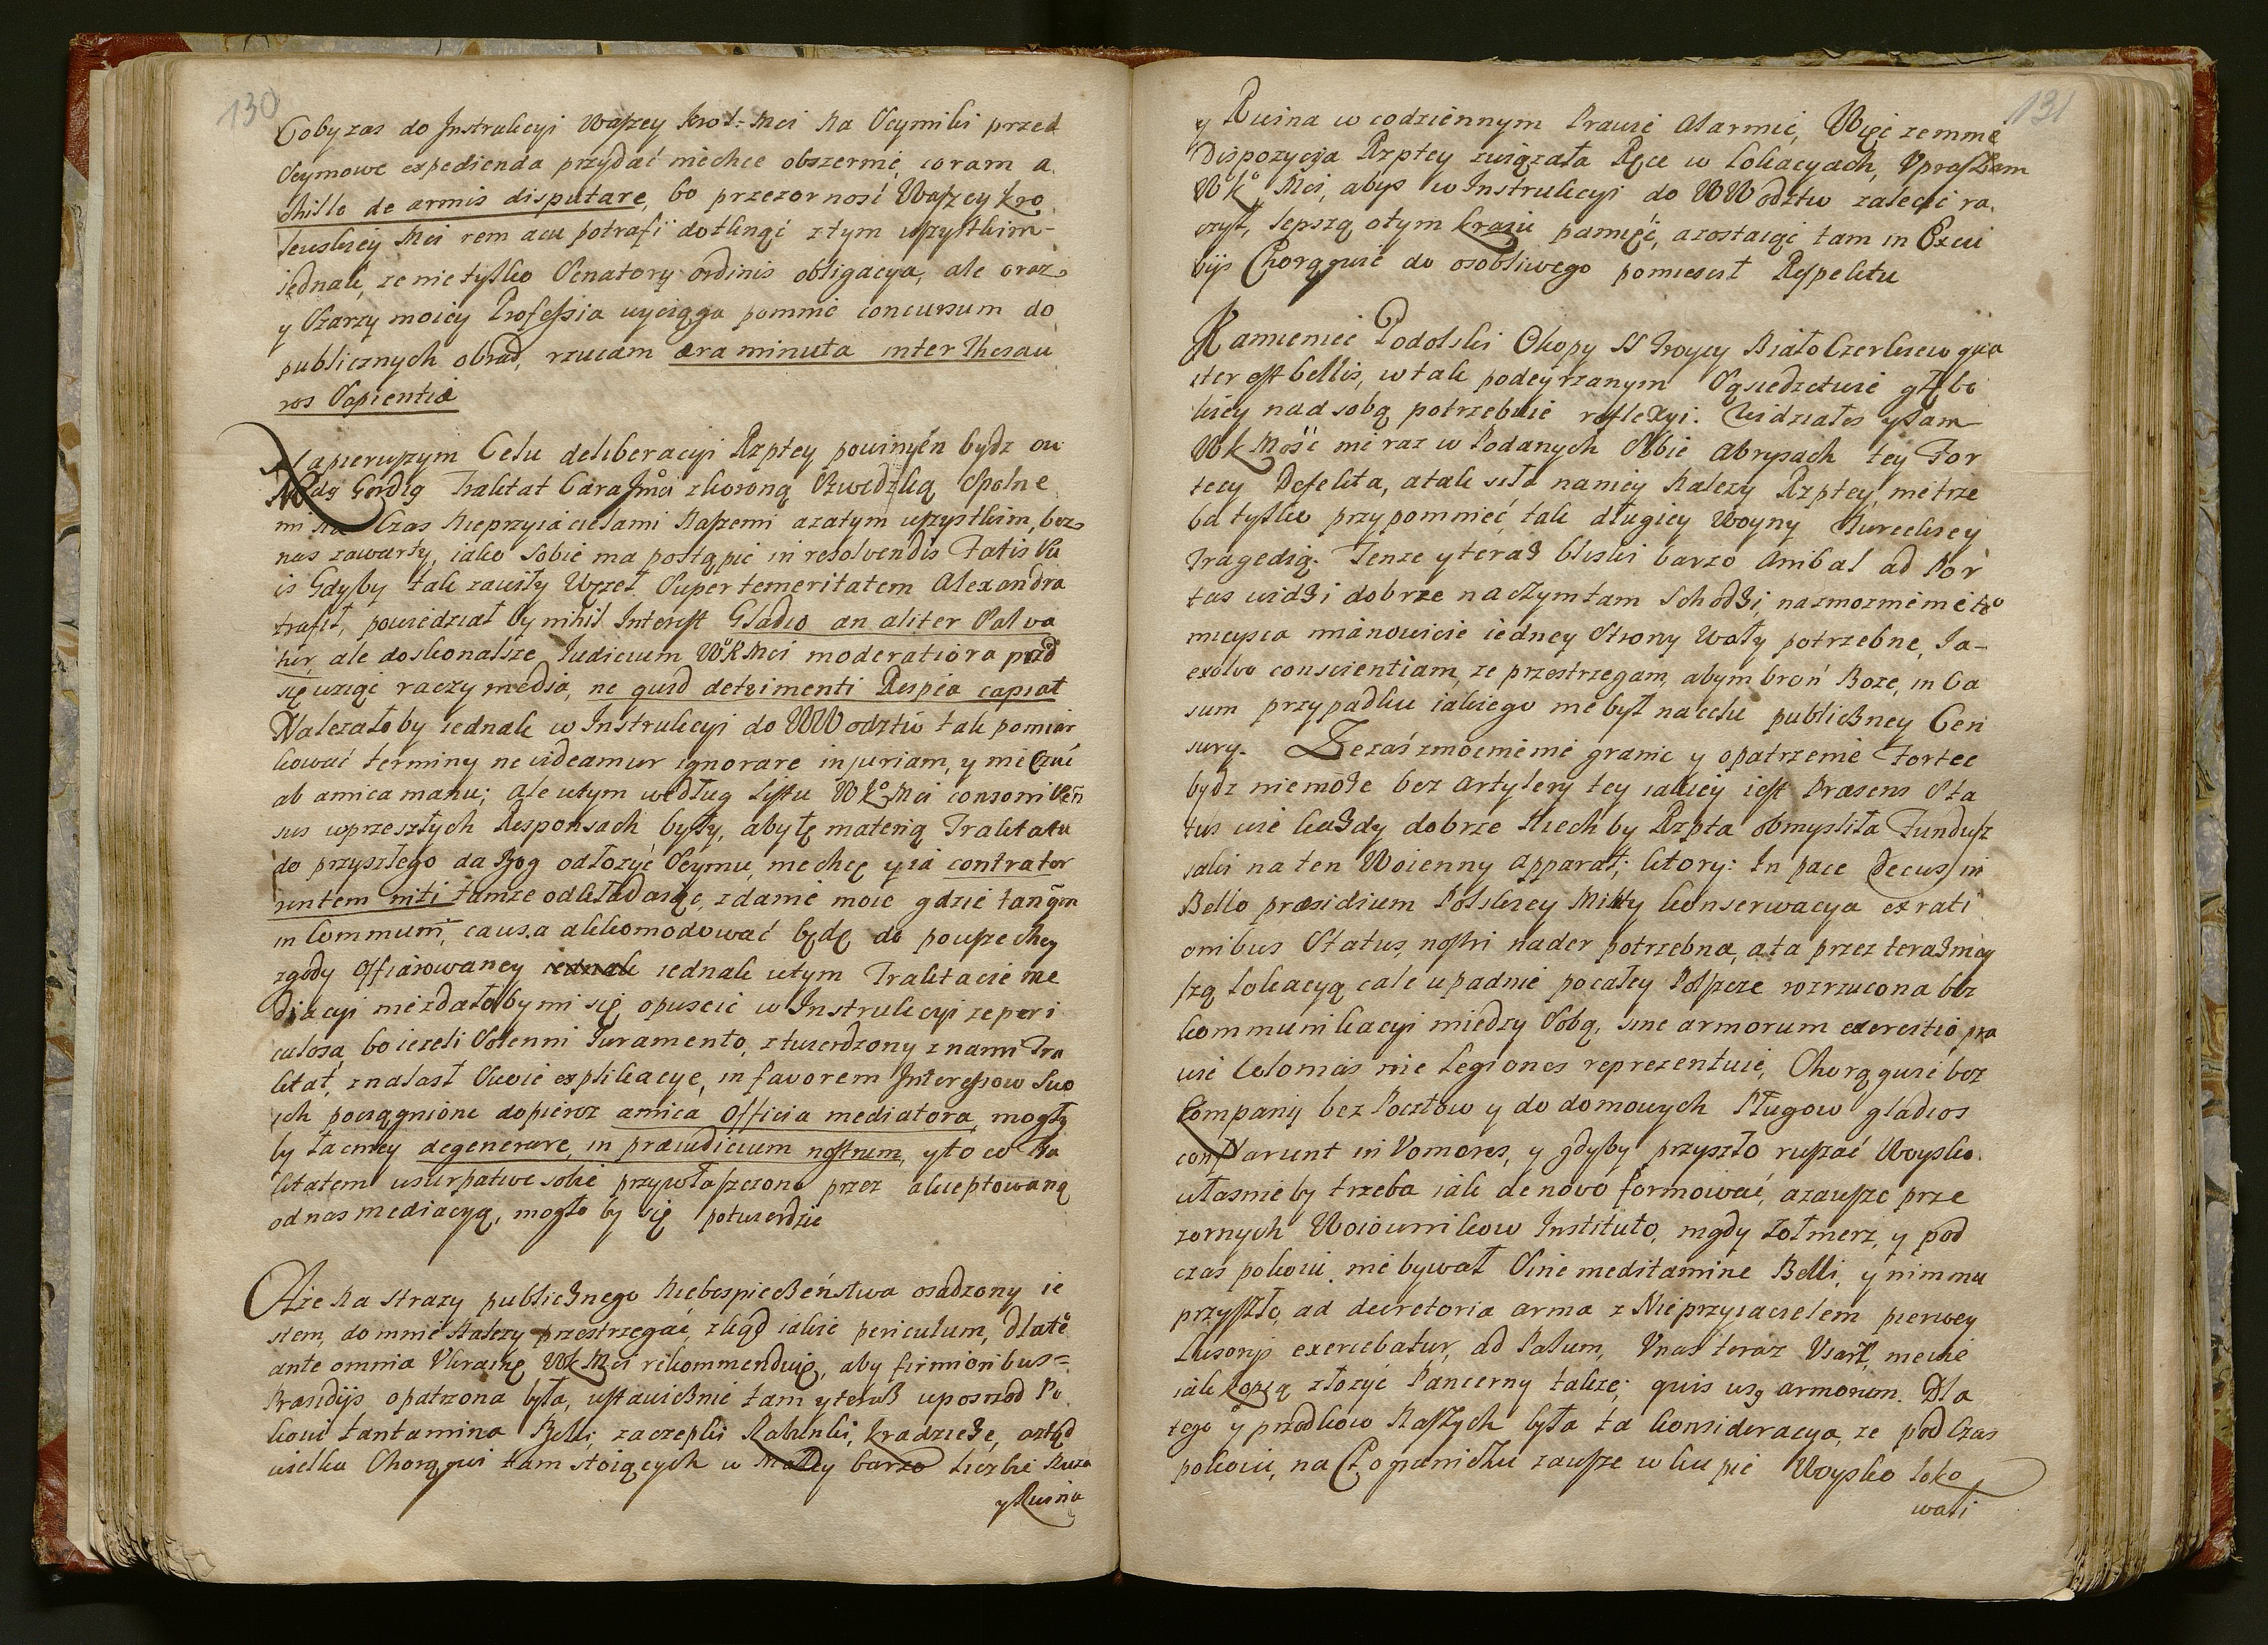 130
Cobyzas do Instrukcyi Waszey Krol: Mci Na Seymiki przed
Seymowe expedienda przydać niechce obszernie, coram a
chille de armis disputare, bo przezornosć Waszey Kro
lewskiey Mci rem acu potrafi dotknąć z tym wszystkim
iednak, ze nie tylko Senatory ordinis obligacya, ale oraz
y Starzy moiey Professia wyciąga pomnie concursum do
publicznych obrad, rzucam æra minuta inter Thesau
ros Sapientiæ
Napierwszym Celu deliberacyi Rzptey powinień bydz
Gordią Traktat Cara Jmci zkoroną Szwedzką Spolne
mi Na Czas Nieprzyiacielami Naszemi azatym wszystkim, bez
nas zawarty, iako sobie ma postąpić in resolvendis Fatis Su
is Gdyby tak zawiły Węzeł Super temeritatem Alexandra
trafił, powiedział by nihil Interest Gladio an aliter Salva
tur, ale doskonalsze Judicium WKMci moderatiora przed
się wziąć raczy media, ne quid detrimenti Respca capiat
Nalezałoby iednak w Instrukcyi do WWodztw tak pomiar
kować terminy ne videamur ignorare injuriam, y nie Czuć
ab amica manu; ale wtym według Listu WKMci consoni Sen
sus wprzeszłych Responsach były, aby tę materią Traktatu
do przyszłego da Bog odłozyć Seymu, niechcę y ia contrator
rentem niti tamze odkładaiąc, zdanie moie gdzie tanqm
in Communi causa akkomodować będę do powszechney
zgody Offiarowaney iednak iednak wtym Traktacie me
diacyi niezdałobymi się opuscić w Instrukcyi ze peri
culosa, bo iezeli Solenni Juramento, ztwierdzony z nami Tra
ktat, znalast Swoie explikacye, in favorem Interessow Swo
ich pociągnione dopieroz amica Officia mediatora, mogły
by łacniey degenerare in præiudicium nostrum, y to co Tra
ktatem usurpative sobie przywłaszczono przez akceptowaną
odnas mediacyą, mogło by się potwierdzić
Aze Na strazy publicznego Niebespieczeństwa osadzony ie
stem, do mnie Nalezy przestrzegać, zkąd iakie periculum, dlate
ante omnia Ukrainę WKMci rekommenduię, aby firmioribus
Præsidijs opatrzona była, ustawicznie tam y teraz uposrzod Po
koiu tentamina Belli zaczepki Rabunki, kradzieże, aztąd
wielka Chorągwi tam stoiących w Małey barzo Liczbie Nuza
y Ruina
131
y Ruina w codziennym Prawie Alarmie, Więc zemmę
Dispozycyia Rzptey związała Ręce w Lokacyach, Upraszam
WK Mci, abys w Instrukcyi do WWodztw zalecić ra
czył, lepszą otym kraiu pamięć, azostaiąc tam in Excu
bijs Chorągwie do osobliwego pomiescił Respektu
Kamieniec Podolski Okopy SS Troycy Biało Czerkiew qua
ter est bellis, w tak podeyrzanym Sąsiedztwie głębo
kiey nad sobą potrzebuie reflexyi. Widziałes y sam
WKMość nie raz w Podanych Sobie Abrysach tey For
tecy Defekta, a tak siła naniey Nalezy Rzptey, nietrze
ba tylko przypomnieć tak długiey Woyny Tureckiey
Tragedią. Tenze y teraz bliski barzo Anibal ad Por
tas widzi dobrze naczym tam Schodzi, nazmocnienie tego
mieysca mianowicie iedney Strony Wały potrzebne, Ja
exolvo conscientiam, ze przestrzegam, abym broń Boze, in Ca
sum przypadku iakiego niebył na celu publiczney Cen
sury. Zezaś zmocnienie granic y opatrzenie Fortec
bydz niemoże bez Artylery tey iakiey iest Præsens Sta
tus wie każdy dobrze Niechby Rzpta obmysliła Fundusz
iaki na ten Woienny apparat; ktory: In pace Decus, in
Bello præsidium Polskiey Mitty konserwacya ex rati
onibus Status, nostri nader potrzebna, ata przez terazniey
szą Lokacyą cale upadnie po całey Polszcze rozrzucona bez
kommunikacyi miedzy Sobą, sine armorum exercitio pra
wie Colonias nie Legiones reprezentuie, Chorągwie bez
Kompanij bez Pocztow y do domowych Pługow gladios
conflarunt in Vomeres, y gdyby przyszło ruszać Woysko
własnieby trzeba iak de novo formować, azawsze prze
zornych Woiownikow Instituto, nigdy Zołnierz, y pod
czas pokoiu niebywał Sine meditamine Belli, y nimmu
przyszło, ad decretoria arma z Nieprzyiacielem pierwey
Lusorijs exercebatur, ad Palum, Unas teraz Usarz, niewie
iak kopią złozyć Pancerny takze; quis usq armorum. Dla
tego y przodkow Naszych była ta konsideracya, ze pod Czas
pokoiu, na Pograniczu zawsze w kupie Woysko loko
wali